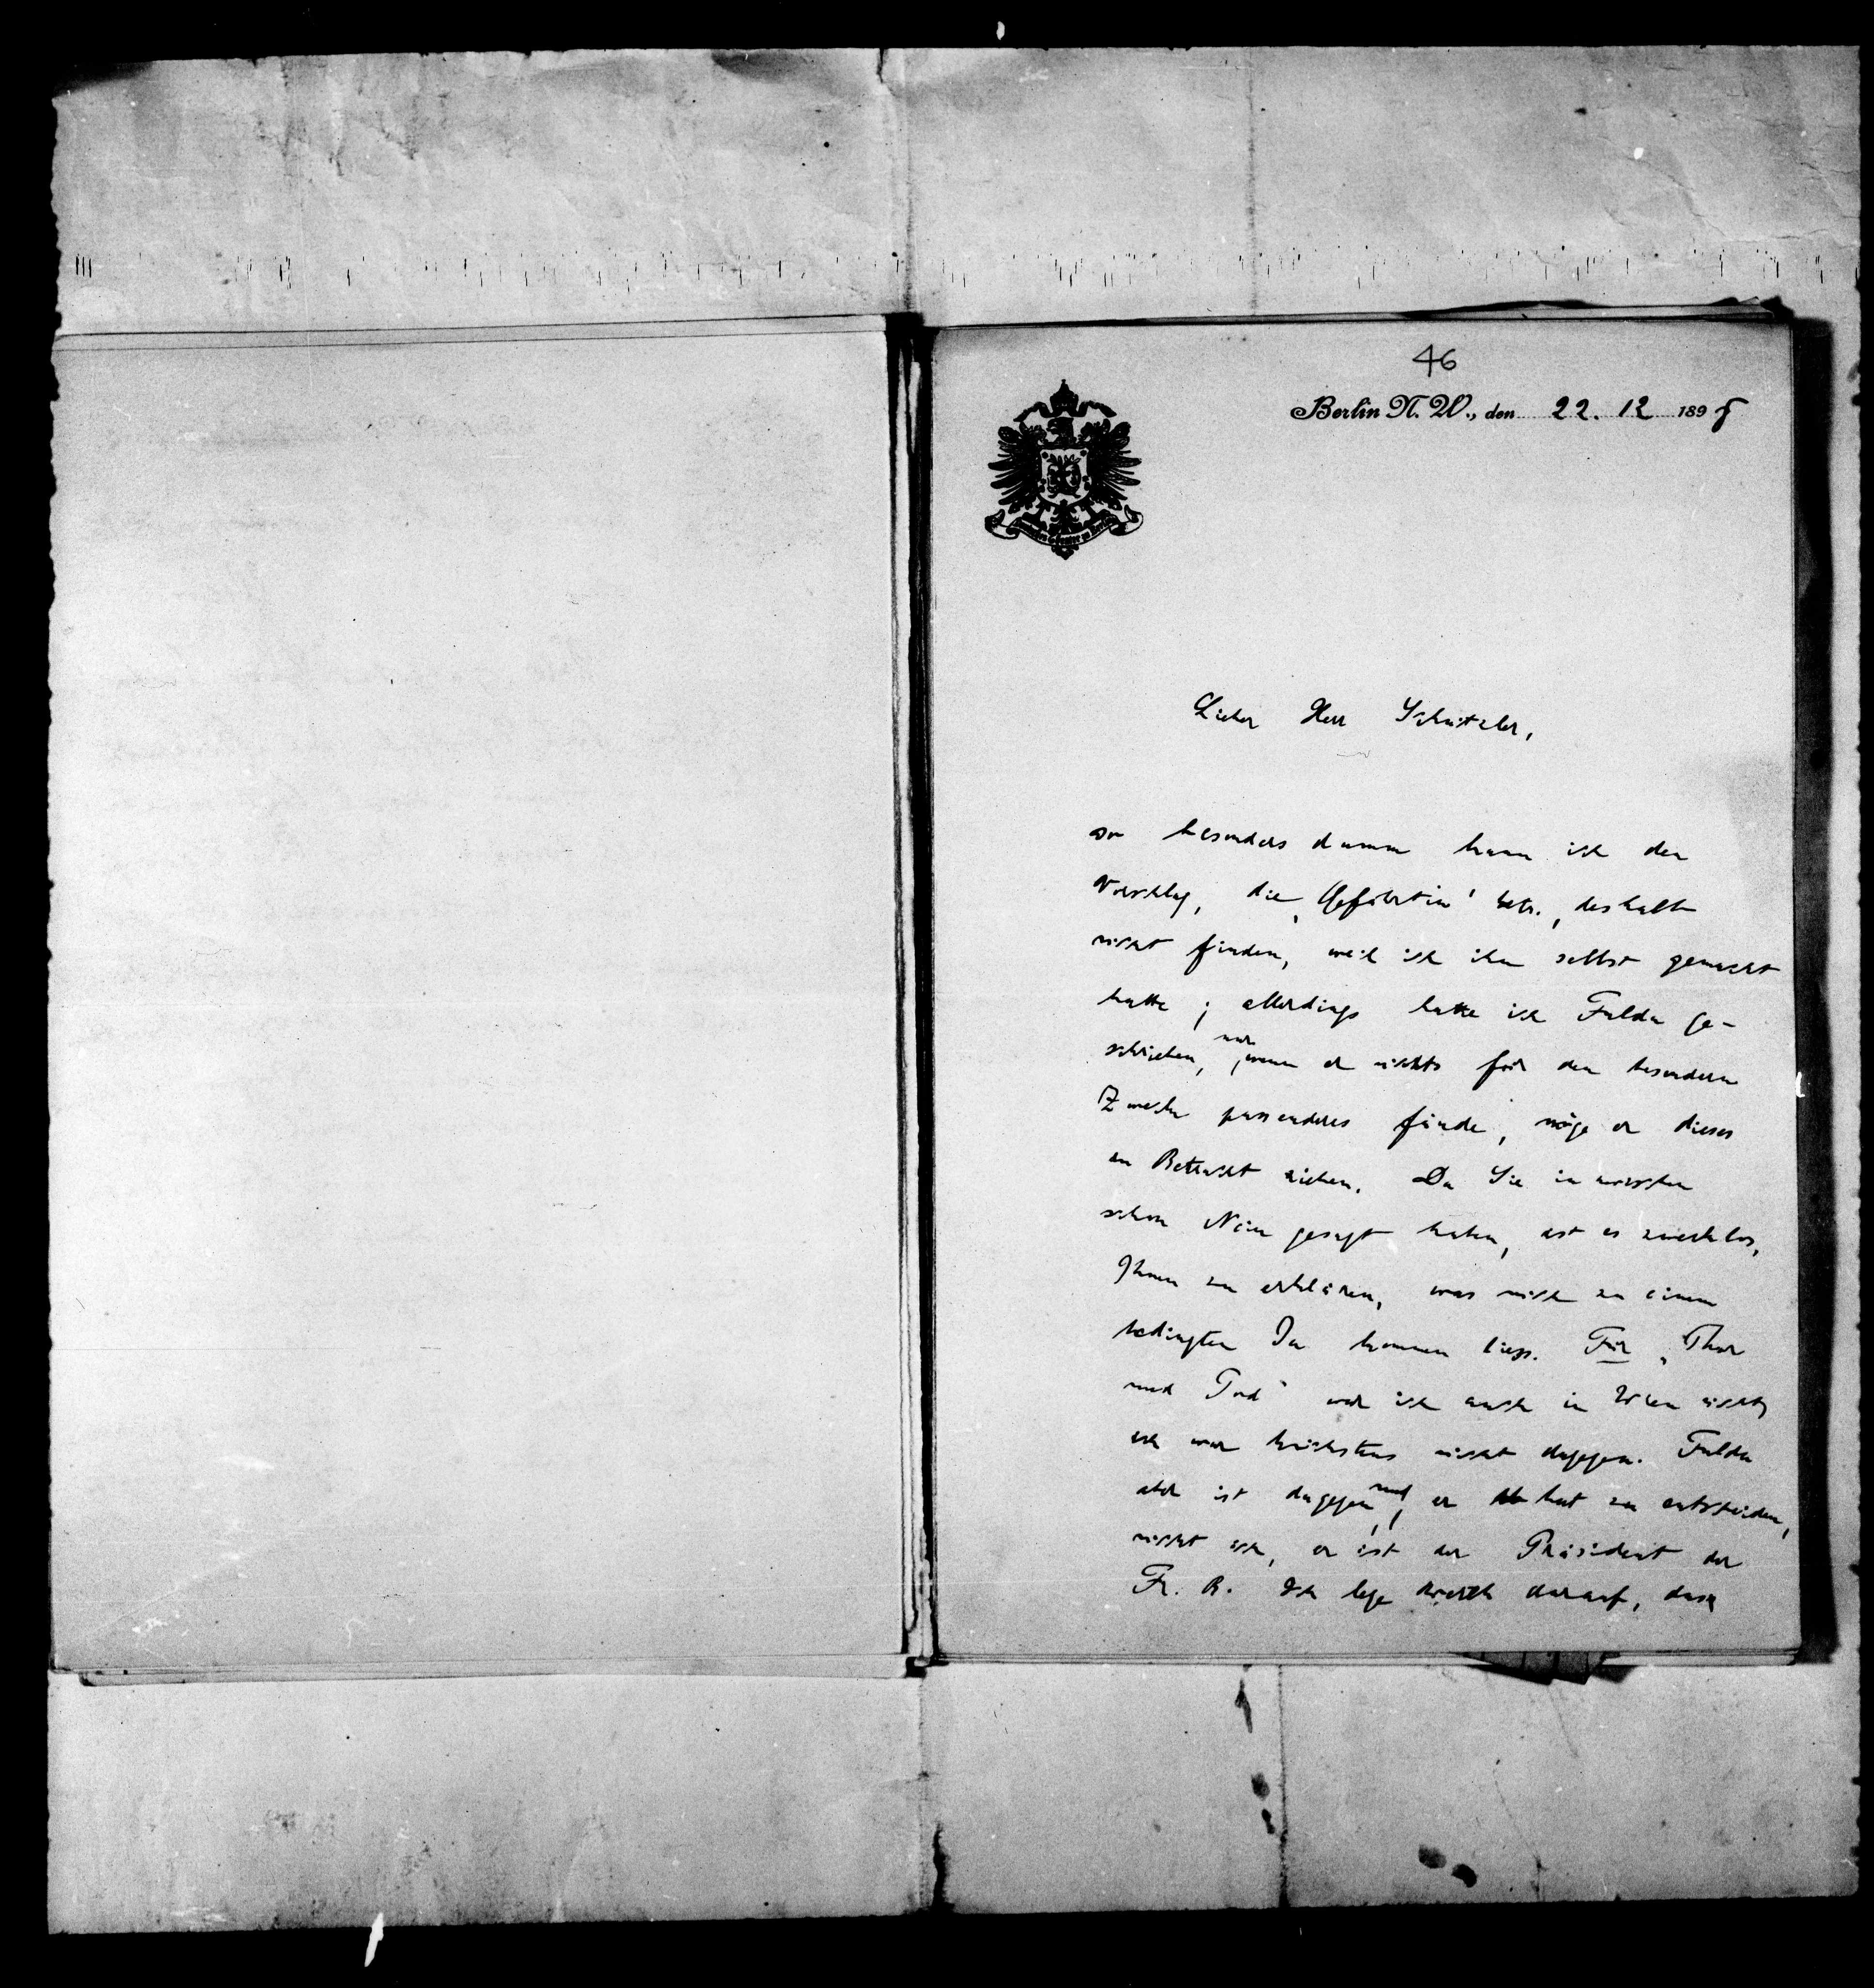 46
Berlin N. W., den 22. 12 1898
Lieber Herr Schnitzler,
so besonders dumm kann ich den
Vorschlag, die „Gefährtin“ betr., deshalb
nicht finden, weil ich ihn selbst gemacht
hatte; allerdings hatte ich Fulda ge-
schrieben, nur, wenn er nichts für den besondern
Zweck passenderes fände, möge er dieses
in Betracht ziehen. Da Sie inzwischen
schon Nein gesagt haben, ist es zwecklos,
Ihnen zu erklären, was mich zu einem
bedingten Ja kommen liess. Für „Thor
und Tod“ war ich auch in Wien nicht,
ich war höchstens nicht dagegen. Fulda
aber ist dagegen, und er hat zu entscheiden,
nicht ich, er ist der Präsident der
Fr. B. Ich lege Werth darauf, dass